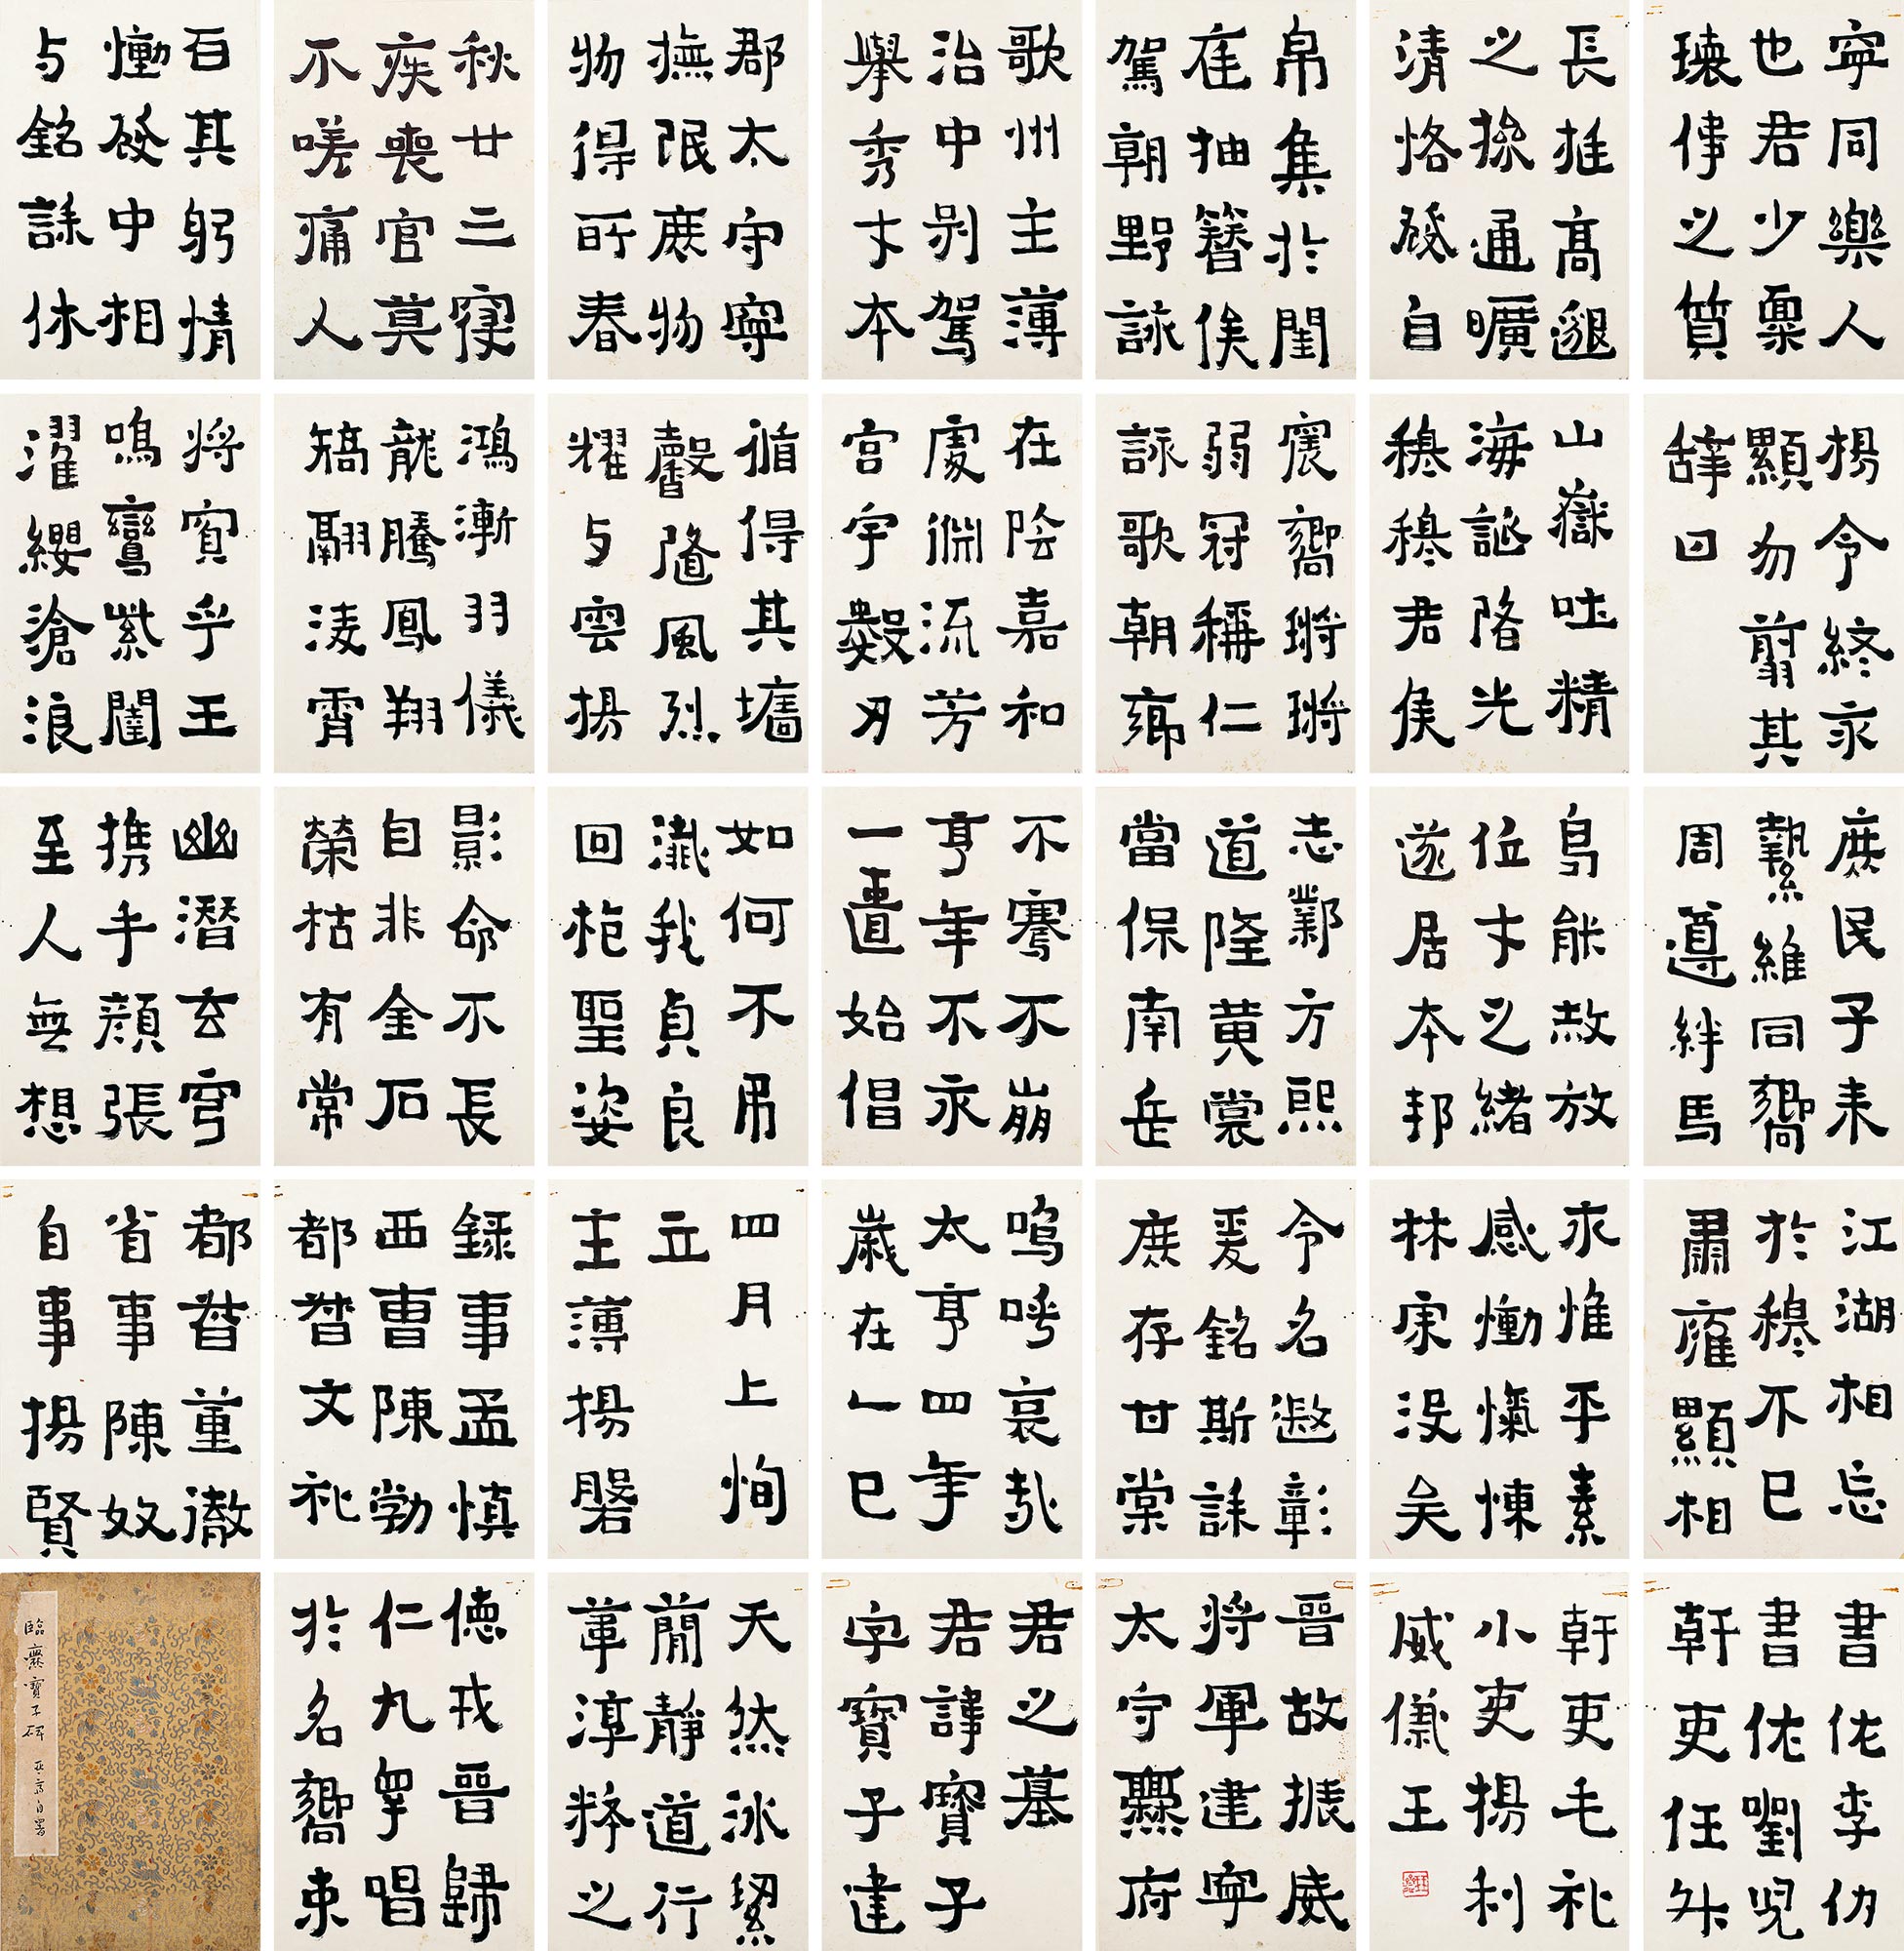 寧同樂人
也君少稟
瓌偉之質
長挺高邈
之操通曠
清恪發自
帛集於閨
庭抽簪俟
駕朝野詠
歌州主薄
治中別駕
舉秀才本
郡太守寧
撫氓庶物
物得所春
秋廿三寑
疾喪官莫
不嗟痛人
百其躬情
慟發中相
与銘誄休
揚令終永
顯勿翦其
辭曰
山嶽吐精
海誕降光
穆穆君侯
震嚮鏘鏘
弱冠稱仁
詠歌朝鄉
在陰嘉和
處淵流芳
宮宇數刃
循得其墻
馨隨風烈
耀与雲揚
鴻漸羽儀
龍騰鳳翔
矯翮淩霄
將賓乎王
鳴鸞紫闥
濯纓滄浪
庶民子来
縶維同嚮
周遵絆馬
鳥能赦放
位才之緒
遂居本邦
志鄴方熙
道隆黄裳
當保南岳
不騫不崩
享年不永
一匱始倡
如何不弔
濈我貞良
回枹聖姿
影命不長
自非金石
榮枯有常
幽潛玄穹
携手顏張
至人無想
江湖相忘
於穆不已
肅雍顯相
永惟平素
感慟愾悚
林宗没矣
令名遐彰
爰銘斯誄
庶存甘棠
嗚呼哀哉
太亨四年
歲在乙巳
四月上恂
立
主薄揚磐
錄事孟慎
西曹陳勃
都督文礼
都督董徹
省事陳奴
自事揚賢
書佐李仂
書佐劉兒
幹吏任升
幹吏毛礼
小吏揚利
威儀王
晉故振威
將軍建寧
太守爨府
君之墓
君諱寶子
字寶子建
天然冰絜
簡静道行
葦淳粹之
德戎晉歸
仁九皋唱
於名嚮束
臨爨寶子碑 自署